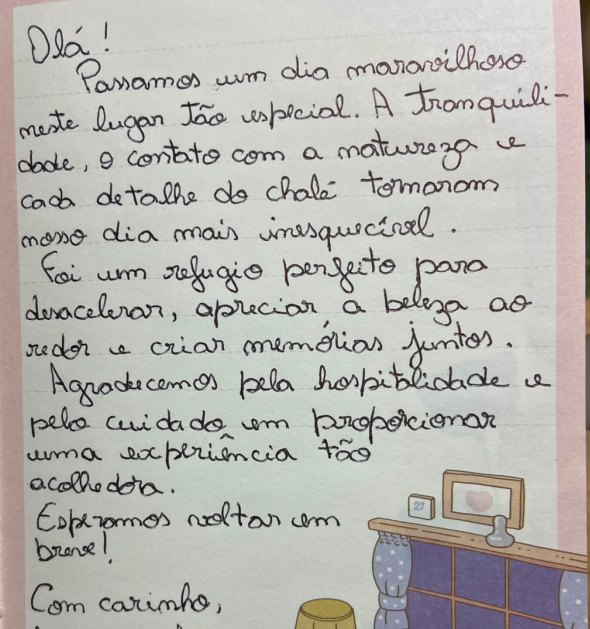 Olá!
Passamos um dia maravilhoso
neste lugar tão especial. A tranquili-
dade, o contato com a natureza e
cada detalhe do chalé tornaram
nosso dia mais inesquecível.
Foi um refúgio perfeito para
desacelerar, apreciar a beleza ao
redor e criar memórias juntos.
Agradecemos pela hospitalidade e
pelo cuidado em proporcionar
uma experiência tão
acolhedora.
Esperamos voltar em
breve!
Com carinho,
27